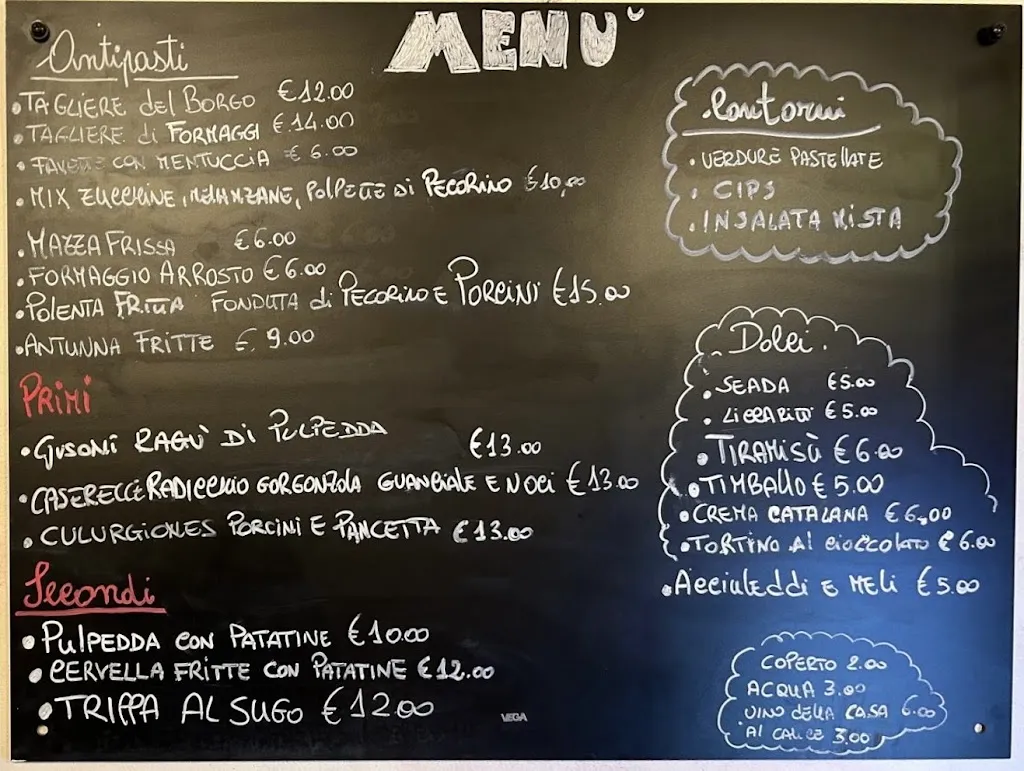 MENU'
Antipasti
• TAGLIERE del BORGO €12.00
• TAGLIERE di FORMAGGI €.14.00
• FAVETTE CON MENTUCCIA € 6.00
• MIX ZUCCHINE, MELANZANE, POLPETTE di PECORINO €10,00
• MAZZA FRISSA €6.00
• FORMAGGIO ARROSTO €6.00
• POLENTA FRITTA FONDUTA di PECORINO E PORCINI €15.00
• ANTUNNA FRITTE €. 9.00
PRIMI
• GNSONI RAGU' DI PULPEDDA €13.00
• CASERECCE RADICCHIO GORGONZOLA GUANCIALE E NOCI €13.00
• CULURGIONES PORCINI E PANCETTA €13.00
Secondi
• PULPEDDA CON PATATINE €10.00
• CERVELLA FRITTE CON PATATINE €12.00
• TRIPPA AL SUGO €12.00
Contorni
• VERDURE PASTELLATE
• CIPS
• INSALATA MISTA
Dolci.
• SEADA €5.00
• €5.00
• TIRAMISÙ €6.00
• TIMBALLO €5.00
• CREMA CATALANA €6,00
• TORTINO AL CIOCCOLATO €6.00
• Acciuleddi E MELI €5.00
COPERTO 2.00
ACQUA 3.00
VINO DELLA CASA 6.00
AL CALICE 3.00
VEGA